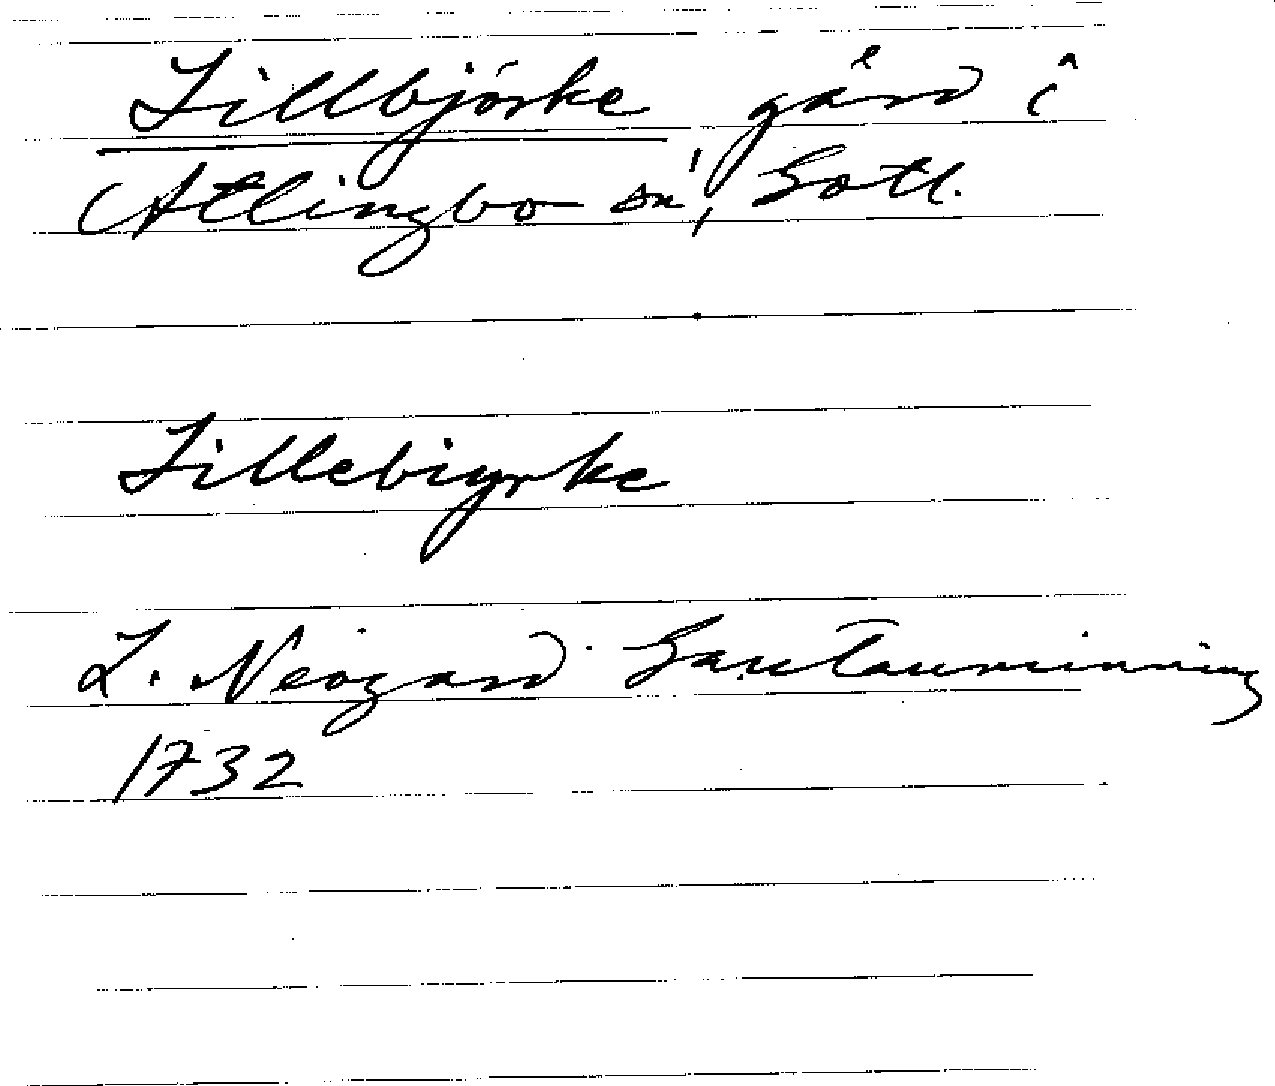 Lillbjörke gård i
Atlingbo sn, Gotl.
Lillebiyrke
L. Neogard Gautauminning
1732